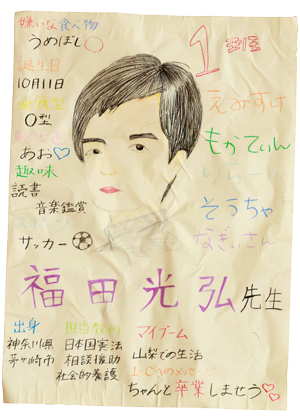 嫌いな食べ物
うめぼし
誕生日
10月11日
血液型
O型
あお♡
趣味
読書
音楽鑑賞
サッカー
1
えみすけ
もかてぃん
そうちゃ
なぎぃさん
福田光弘先生
出身
神奈川県
茅ヶ崎市
担当教科
日本国憲法
相談援助
社会的養護
マイブーム
山梨での生活
1-Cへのメッセージ
ちゃんと卒業しませう♡